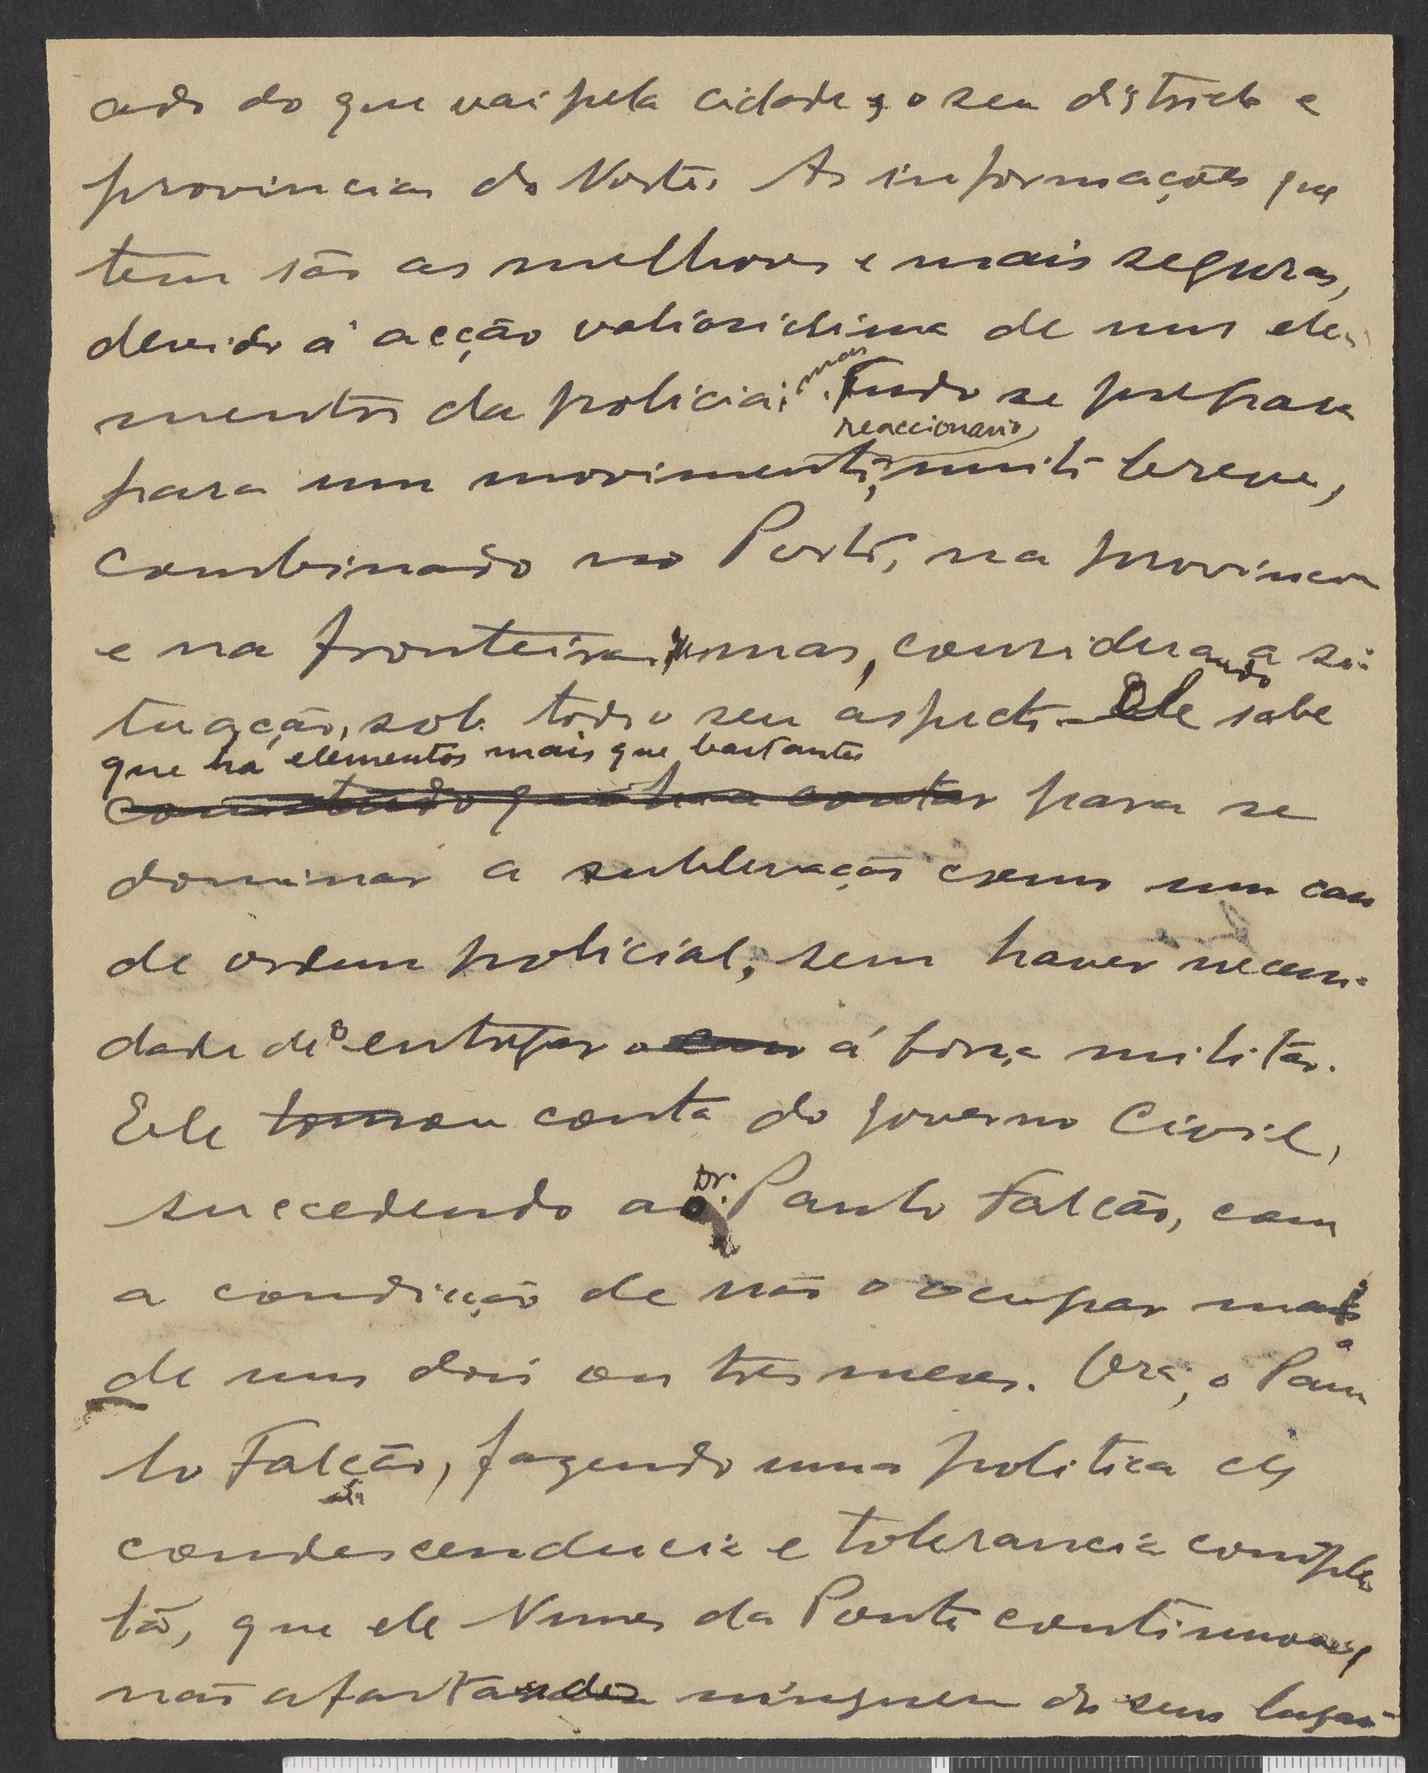 cado do que vai pela cidade, o seu districto e
provincias do Norte. As informações que
tem são as melhores e mais seguras,
devido á acção valiosissima de uns ele-
mentos da policia; mas tudo se prepara
reaccionario,
para um movimento, muito breve,
combinado no Porto, na provincia
e na fronteira, mas, considerando a si-
tuação, sob todo o seu aspecto Ele sabe
que ha elementos mais que bastantes
para se
dominar a sublevação como um caso
de ordem policial, sem haver necessi-
dade de o entregar á força militar.
Ele tomou conta do governo Civil,
succedendo ao Dr. Paulo Falcão, com
a condicção de não o occupar mais
de uns dois ou tres meses. Ora, o Pau
lo Falcão, fazendo uma politica de
condescendencia e tolerancia comple
ta, que ele Nunes da Ponte continuou,
não afastando ninguem dos seus lugar-